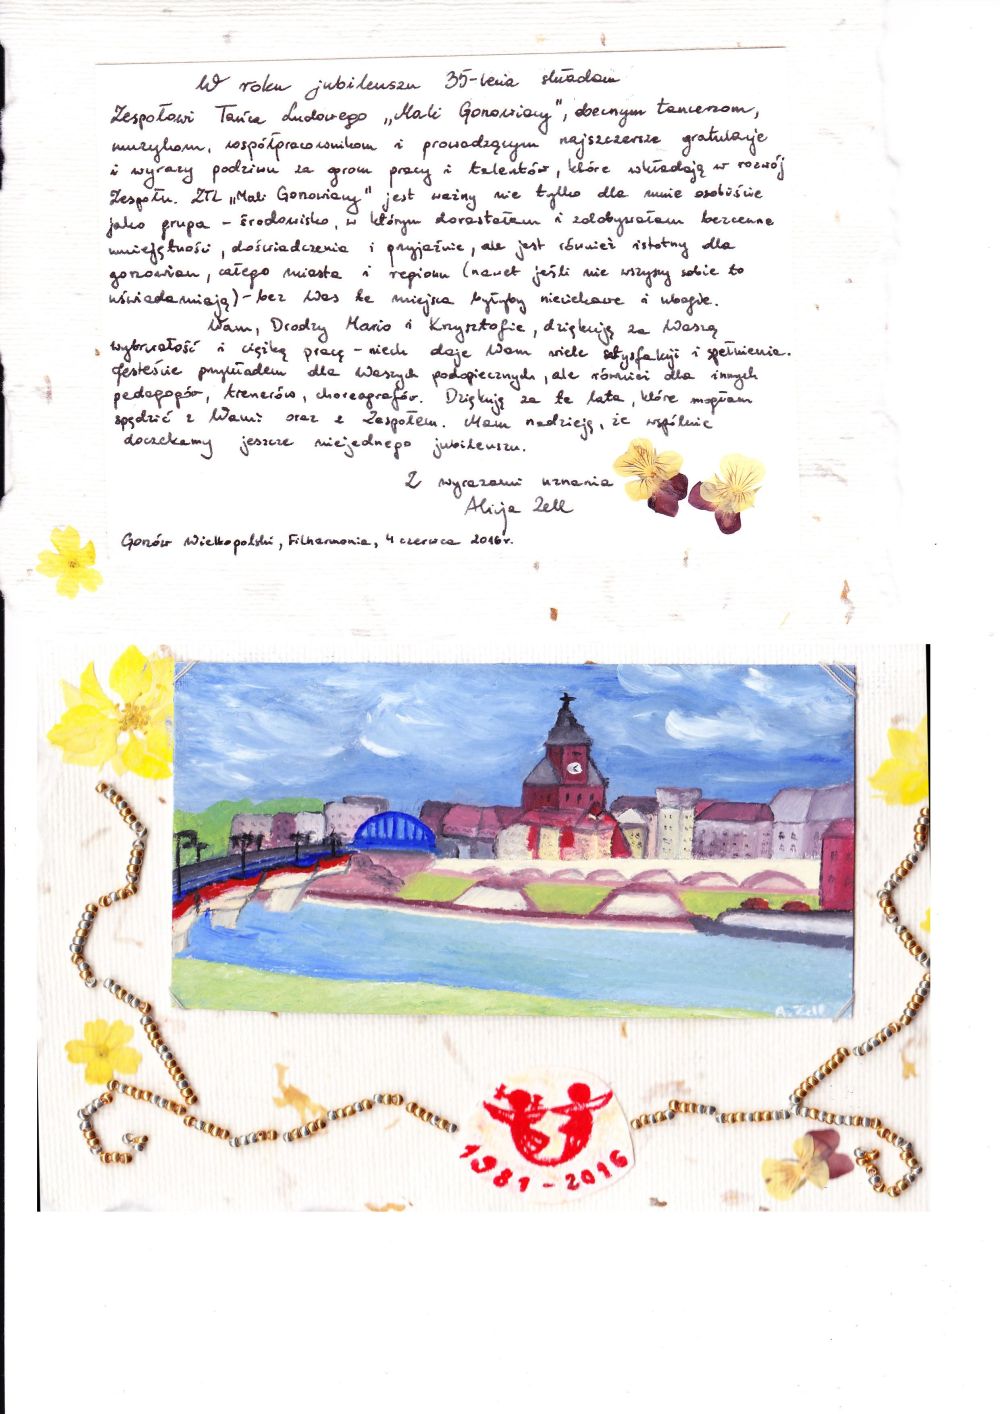 W roku jubileuszu 35-lecia składam
Zespołowi Tańca Ludowego „Mali Gorzowiacy", obecnym tancerzom,
muzykom, współpracownikom i prowadzącym najszczersze gratulacje
i wyrazy podziwu za grom pracy i talentów, które wkładają w rozwój
Zespołu. ZTL „Mali Gorzowiacy" jest ważny nie tylko dla mnie osobiście
jako grupa - środowisko, w którym dorastałam i zdobywałam bezcenne
umiejętności, doświadczenia i przyjaźnie, ale jest również istotny dla
gorzowian, całego miasta i regionu (nawet jeśli nie wszyscy sobie to
uświadamiają) - bez Was te miejsca byłyby nieciekawe i ubogie.
Wam, Drodzy Mario i Krzysztofie, dziękuję za Waszą
wytrwałość i ciężką pracę - niech daje Wam wiele satysfakcji i spełnienia.
Jesteście przykładem dla Waszych podopiecznych, ale również dla innych
pedagogów, trenerów, choreografów. Dziękuję za te lata, które mogłam
spędzić z Wami oraz z Zespołem. Mam nadzieję, że wspólnie
doczekamy jeszcze niejednego jubileuszu.
Z wyrazami uznania
Alicja Zell
Gorzów Wielkopolski, Filharmonia, 4 czerwca 2016r.
A. Zell
1981-2016